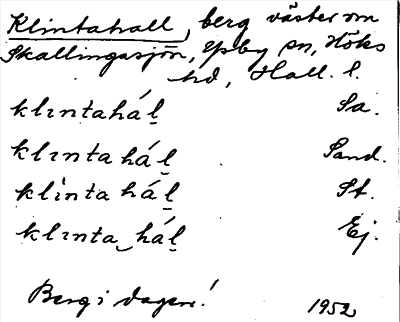 Klintahall, berg väster om
Skallingasjön, Ysby sn, Höks
hd, Hall. l.
klɪntahál̲ Sa.
klɪnta hál̲ Sand.
klìnta hál̲ St.
klɪnta‿hál̲ Ej.
Berg i dagen! 1952